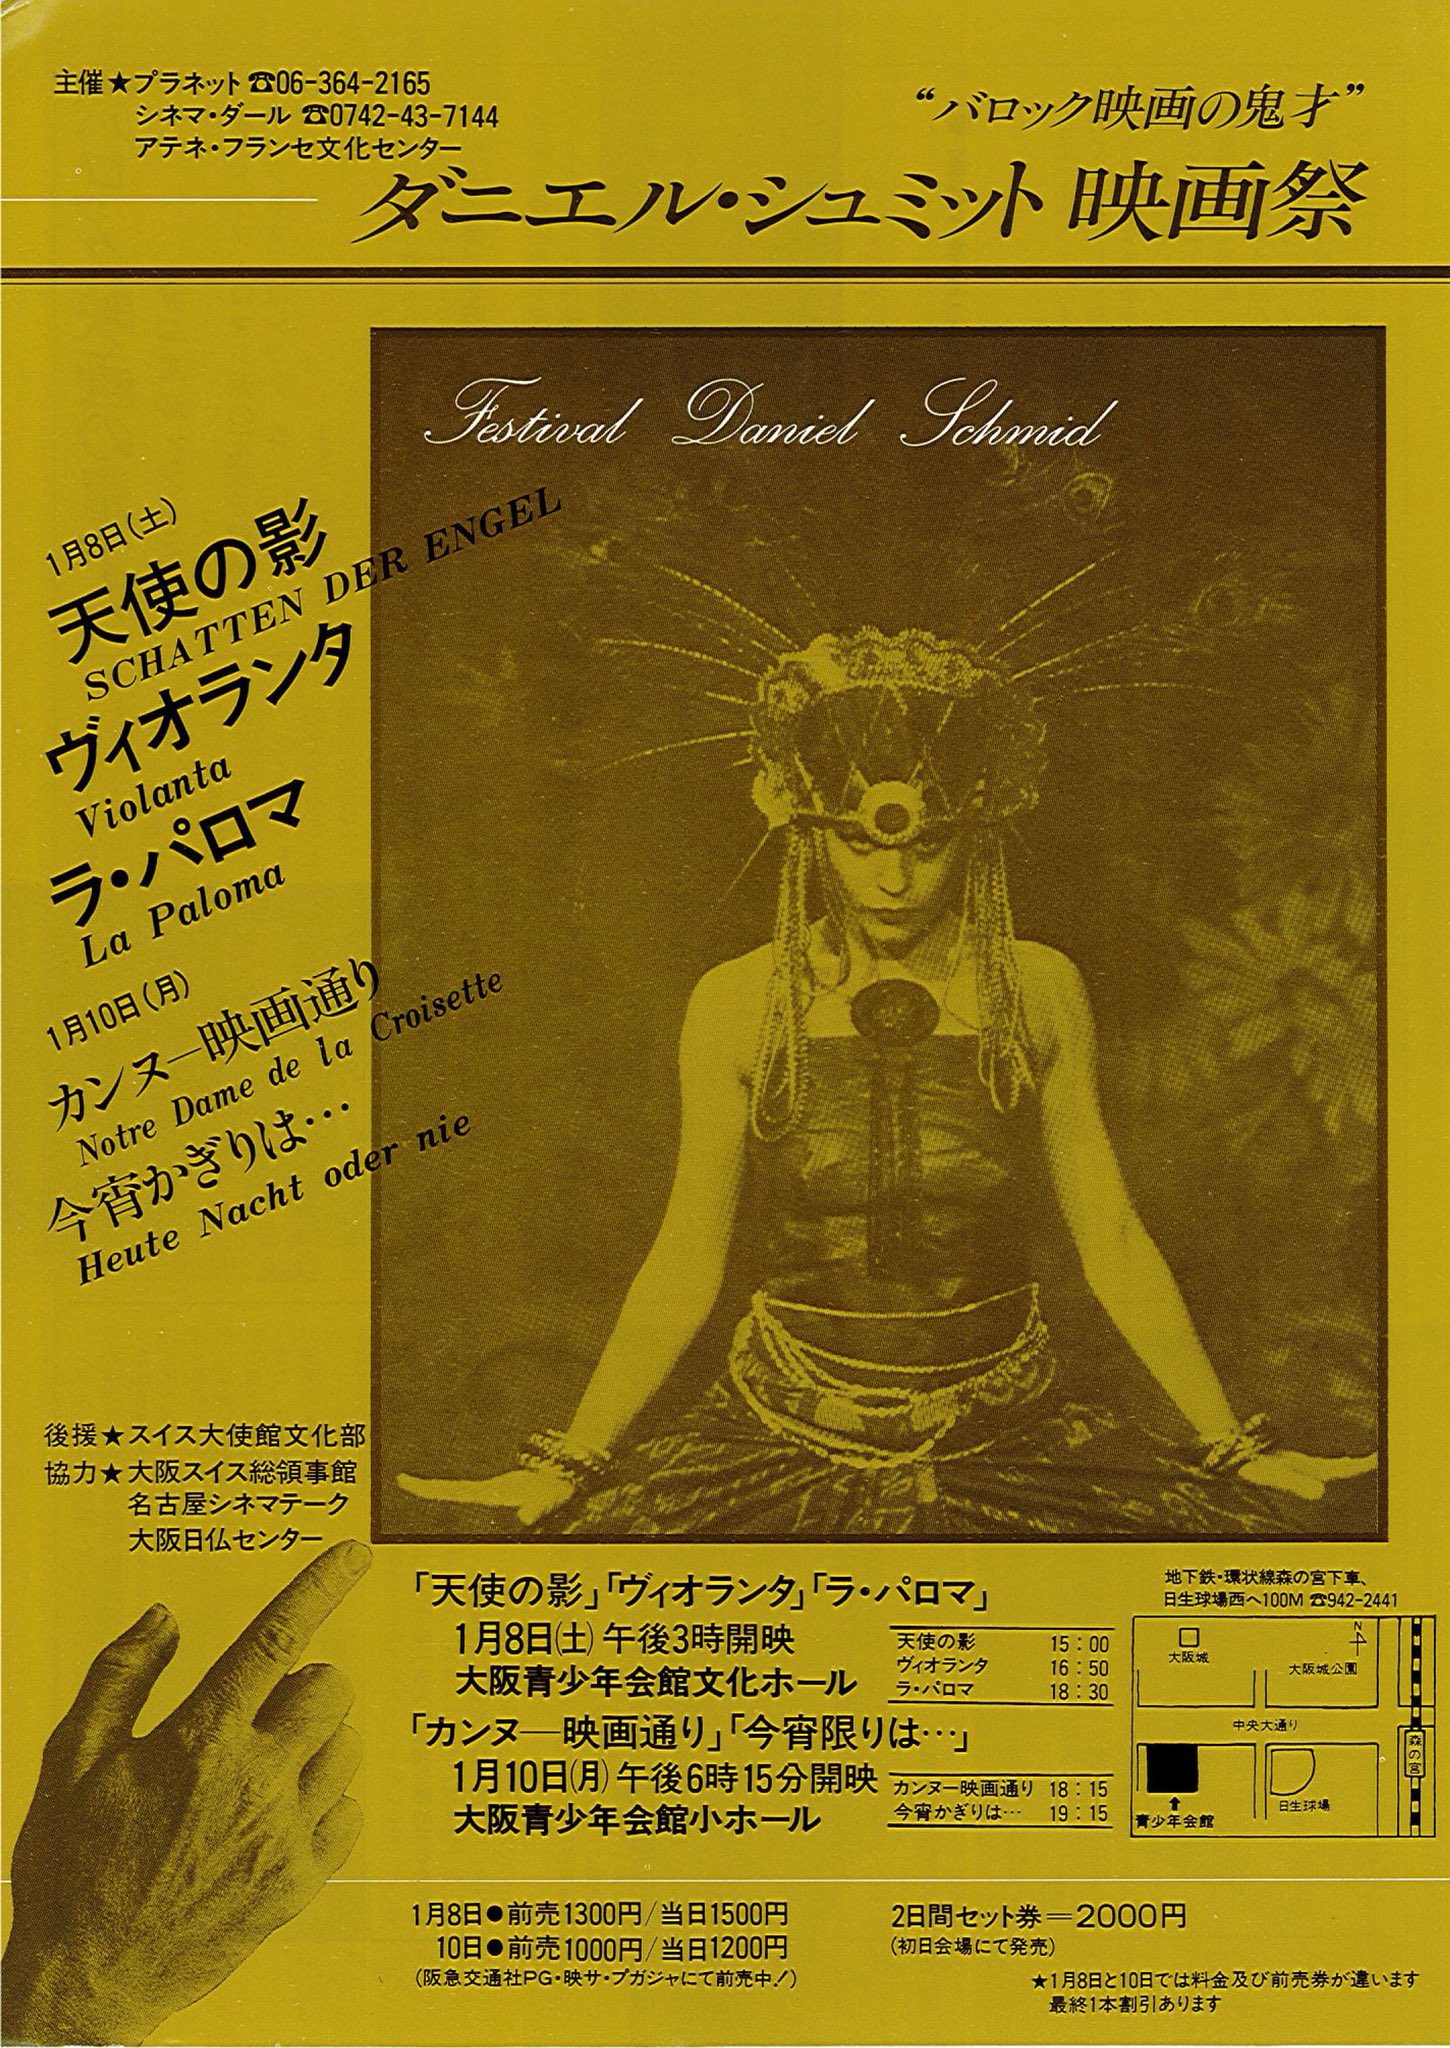 主催★プラネット ☎06-364-2165
シネマ・ダール ☎0742-43-7144
アテネ・フランセ文化センター
“バロック映画の鬼才”
ダニエル・シュミット映画祭
Festival Daniel Schmid
1月8日(土)
天使の影
SCHATTEN DER ENGEL
ヴィオランタ
Violanta
ラ・パロマ
La Paloma
1月10日(月)
カンヌ―映画通り
Notre Dame de la Croisette
今宵かぎりは…
Heute Nacht oder nie
後援★スイス大使館文化部
協力★大阪スイス総領事館
名古屋シネマテーク
大阪日仏センター
「天使の影」「ヴィオランタ」「ラ・パロマ」
1月8日(土)午後3時開映
大阪青少年会館文化ホール
天使の影 15:00
ヴィオランタ 16:50
ラ・パロマ 18:30
「カンヌ―映画通り」「今宵限りは…」
1月10日(月)午後6時15分開映
大阪青少年会館小ホール
カンヌー映画通り 18:15
今宵かぎりは… 19:15
地下鉄・環状線森の宮下車、
日生球場西へ100M ☎942-2441
N
大阪城
大阪城公園
中央大通り
森の宮
日生球場
青少年会館
1月8日●前売1300円/当日1500円
10日●前売1000円/当日1200円
(阪急交通社PG・映サ・プガジャにて前売中!)
2日間セット券=2000円
(初日会場にて発売)
★1月8日と10日では料金及び前売券が違います
最終1本割引あります